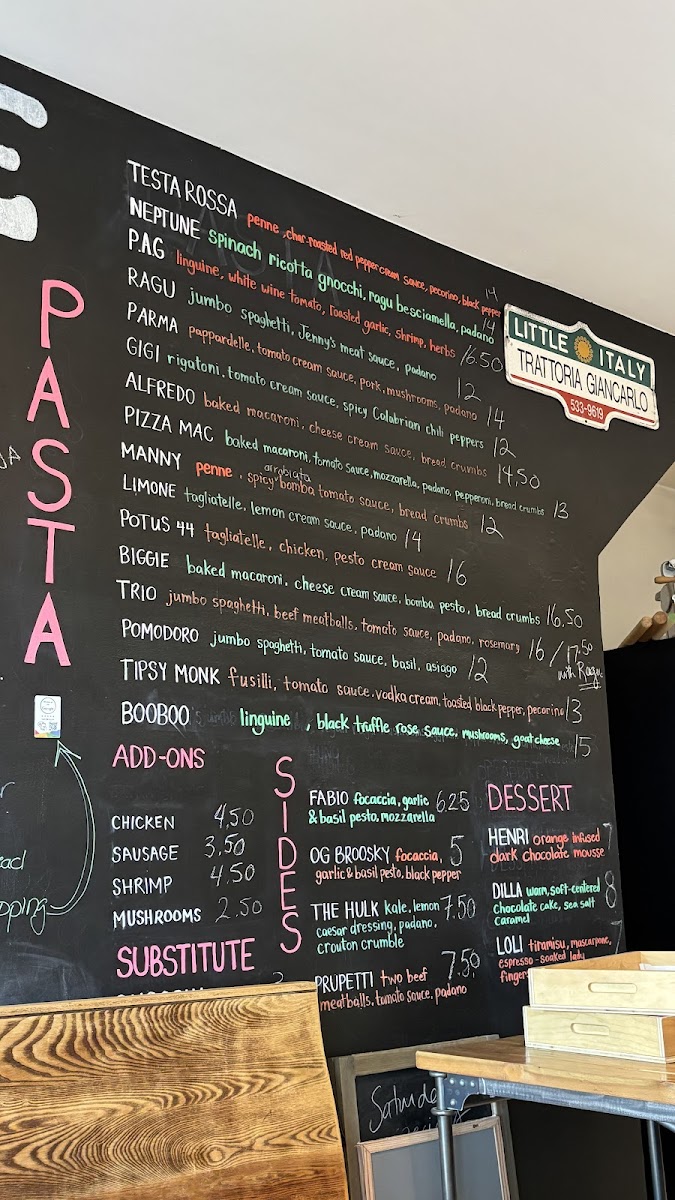 PASTA
TESTA ROSSA penne, char-roasted red pepper cream sauce, pecorino, black pepper 14
NEPTUNE spinach ricotta gnocchi, ragu besciamella, padano 14
P.A.G linguine, white wine tomato, roasted garlic, shrimp, herbs 16.50
RAGU jumbo spaghetti, Jenny's meat sauce, padano 12
PARMA pappardelle, tomato cream sauce, pork, mushrooms, padano 14
GIGI rigatoni, tomato cream sauce, spicy Calabrian chili peppers 12
ALFREDO baked macaroni, cheese cream sauce, bread crumbs 14.50
PIZZA MAC baked macaroni, tomato sauce, mozzarella, padano, pepperoni, bread crumbs 13
MANNY penne, spicy arrabiata bomba tomato sauce, bread crumbs 12
LIMONE tagliatelle, lemon cream sauce, padano 14
POTUS 44 tagliatelle, chicken, pesto cream sauce 16
BIGGIE baked macaroni, cheese cream sauce, bomba pesto, bread crumbs 16.50
TRIO jumbo spaghetti, beef meatballs, tomato sauce, padano, rosemary 16 / 17.50 with Ragu
POMODORO jumbo spaghetti, tomato sauce, basil, asiago 12
TIPSY MONK fusilli, tomato sauce, vodka cream, toasted black pepper, pecorino 13
BOOBOO linguine, black truffle rose sauce, mushrooms, goat cheese 15
LITTLE ITALY
TRATTORIA GIANCARLO
533-9619
ADD-ONS
CHICKEN 4.50
SAUSAGE 3.50
SHRIMP 4.50
MUSHROOMS 2.50
SUBSTITUTE
SIDES
FABIO focaccia, garlic 6.25
& basil pesto, mozzarella
OG BROOSKY focaccia, 5
garlic & basil pesto, black pepper
THE HULK kale, lemon 7.50
caesar dressing, padano,
crouton crumble
PRUPETTI two beef 7.50
meatballs, tomato sauce, padano
DESSERT
HENRI orange infused 7
dark chocolate mousse
DILLA warm, soft-centered 8
chocolate cake, sea salt
caramel
LOLI tiramisu, mascarpone,
espresso-soaked lady
fingers